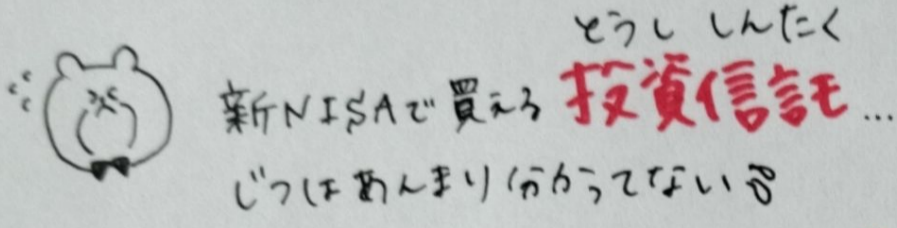 とうし しんたく
新NISAで買える 投資信託...
じつはあんまり分かってない